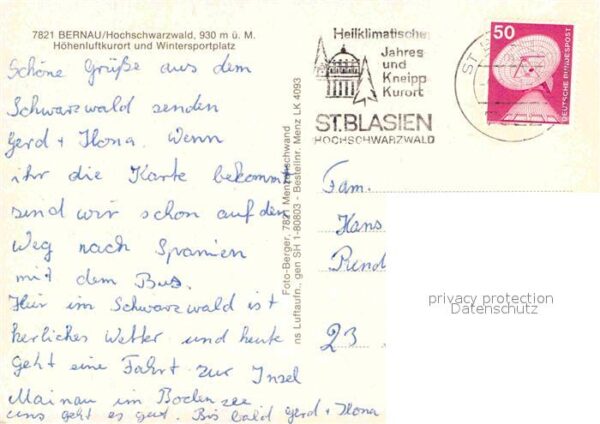 7821 BERNAU/Hochschwarzwald, 930 m ü. M.
Höhenluftkurort und Wintersportplatz
Schöne Grüße aus dem
Schwarzwald senden
Gerd + Ilona. Wenn
ihr die Karte bekommt
sind wir schon auf dem
Weg nach Spanien
mit dem Bus.
Hier im Schwarzwald ist
herliches Wetter und heute
geht eine Fahrt zur Insel
Mainau im Bodensee
uns geht es gut. Bis bald Gerd + Ilona
Foto-Berger, 7821 Menzenschwand
ns Luftaufn., gen SH 1-80803 - Bestellnr. Menz LK 4093
Heilklimatischer
Jahres
und
Kneipp
Kurort
ST.BLASIEN
HOCHSCHWARZWALD
50
DEUTSCHE BUNDESPOST
Fam.
Hans
23
privacy protection
Datenschutz